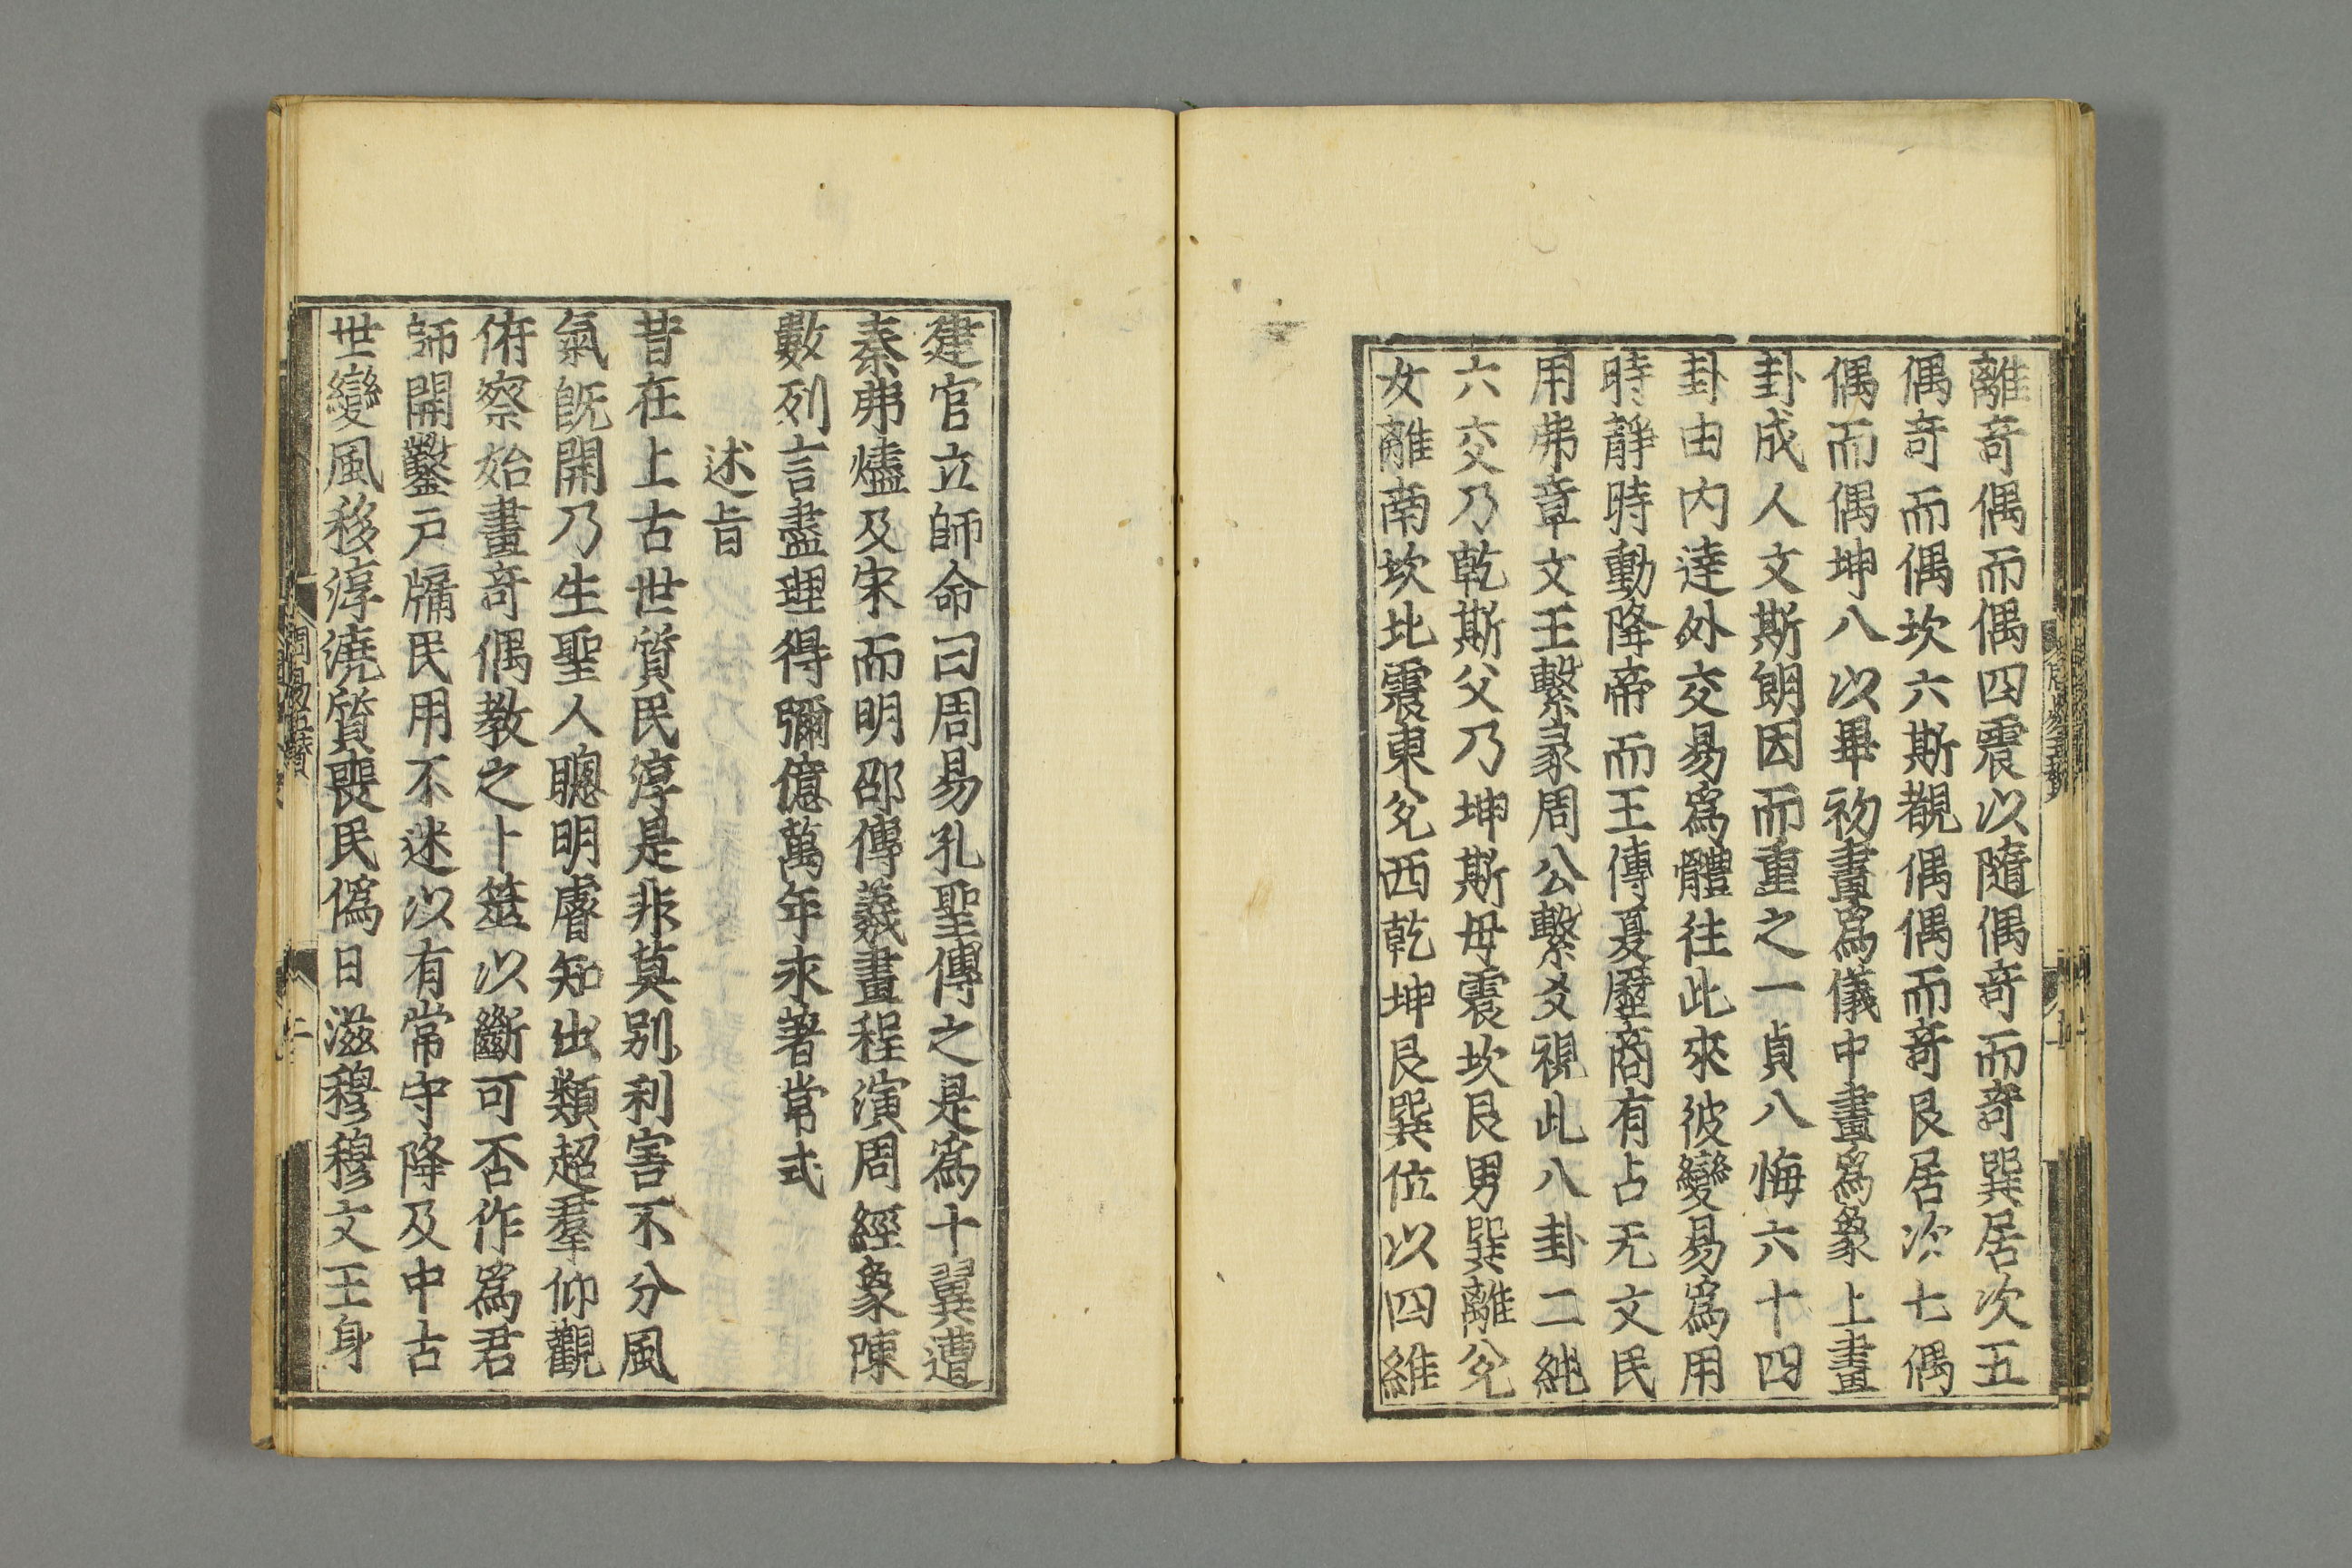 離奇偶而偶四震以隨偶奇而奇巽居次五
偶奇而偶坎六斯覩偶偶而奇艮居次七偶
偶而偶坤八以畢初畫爲儀中畫爲象上畫
卦成人文斯朗因而重之一貞八悔六十四
卦由内逹外交易爲體往此來彼變易爲用
時靜時動降帝而王傳夏歷商有占无文民
用弗章文王繫彖周公繫爻視此八卦二純
六交乃乾斯父乃坤斯母震坎艮男巽離兌
女離南坎北震東兌西乾坤艮巽位以四維
建官立師命曰周易孔聖傳之是爲十翼遭
秦弗燼及宋而明邵傳羲畫程演周經象陳
數列言盡理得彌億萬年永著常式
述旨
昔在上古世質民淳是非莫别利害不分風
氣旣開乃生聖人聰明睿知出類超羣仰觀
俯察始畫奇偶教之卜筮以斷可否作爲君
師開鑿戸牖民用不迷以有常守降及中古
世變風移淳澆質喪民僞日滋穆穆文王身
周易五贊
二